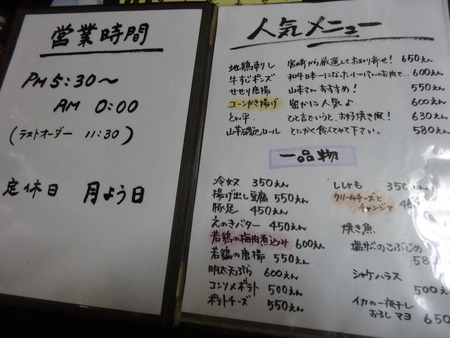 営業時間
PM 5:30〜
AM 0:00
(ラストオーダー 11:30)
定休日 月よう日
人気メニュー
地鶏刺し 宮崎から厳選してお取り寄せ! 650えん
牛すじポンズ 600えん
せせり唐揚 山本さんおすすめ! 550えん
コーンかき揚げ 密かに人気♪ 600えん
とん平 ひと言でいうと、お好焼き風! 630えん
山芋磯辺ロール とにかく食べてみて下さい。 580えん
一品物
冷奴 350えん
揚げ出し豆腐 550えん
豚足 450えん
えのきバター 450えん
若鶏の梅肉煮込み 600えん
若鶏の唐揚 550えん
明太天ぷら 600えん
コンソメポテト 500えん
ポテトチーズ 550えん
ししとも 350
クリームチーズとチャンジャ
焼き魚
塩サバのこぶじめ
58
シャケハラス
500え
イカの一夜干し
おろしマヨ 650